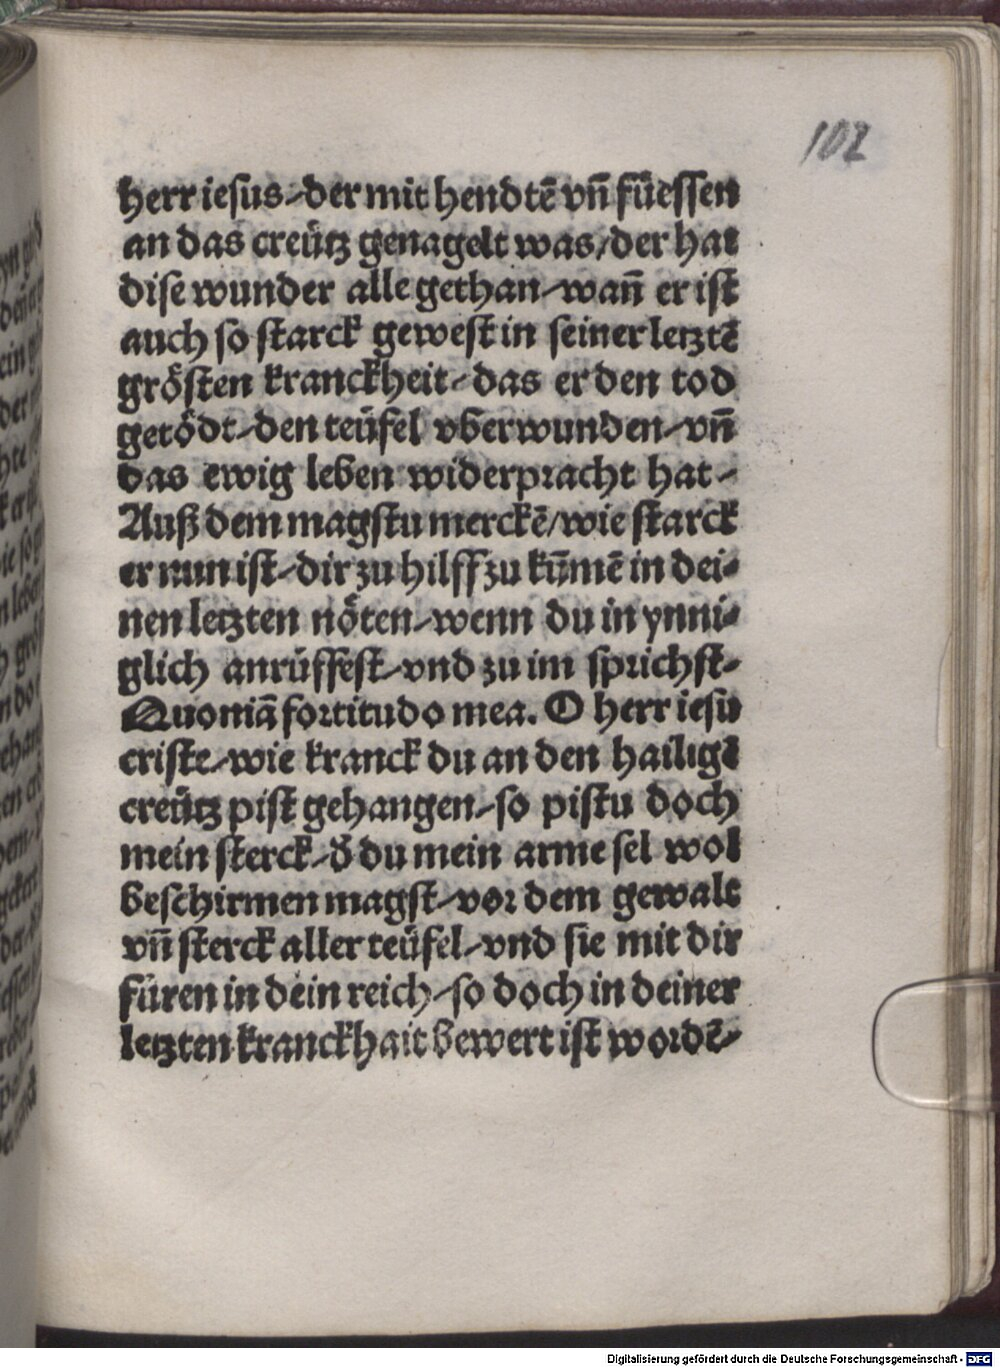 102
herr iesus/der mit hendtē vñ füessen
an das creütz genagelt was/der hat
dise wunder alle gethan/wañ er ist
auch so starck gewest in seiner letztē
grösten kranckheit/das er den tod
getödt/den teüfel vberwunden/vñ
das ewig leben widerpracht hat/
Auß dem magstu merckē/wie starck
er nun ist/dir zu hilff zu kūmē in dei⸗
nen letzten nöten/wenn du in ynni⸗
glich anrüffest/vnd zu im sprichst/
Quoniā fortitudo mea. O herr iesu
criste/wie kranck du an den hailigē
creütz pist gehangen/so pistu doch
mein sterck/d̄ du mein arme sel wol
beschirmen magst/vor dem gewalt
vñ sterck aller teüfel/vnd sie mit dir
füren in dein reich/so doch in deiner
letzten kranckhait bewert ist wordē/
Digitalisierung gefördert durch die Deutsche Forschungsgemeinschaft - DFG